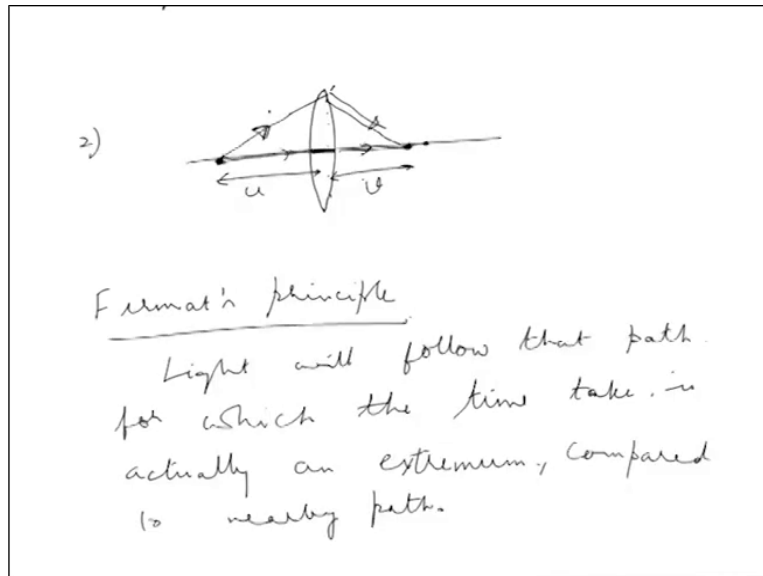 2)
u v
Fermat's principle
Light will follow that path
for which the time take is
actually an extremum, compared
to nearby path.